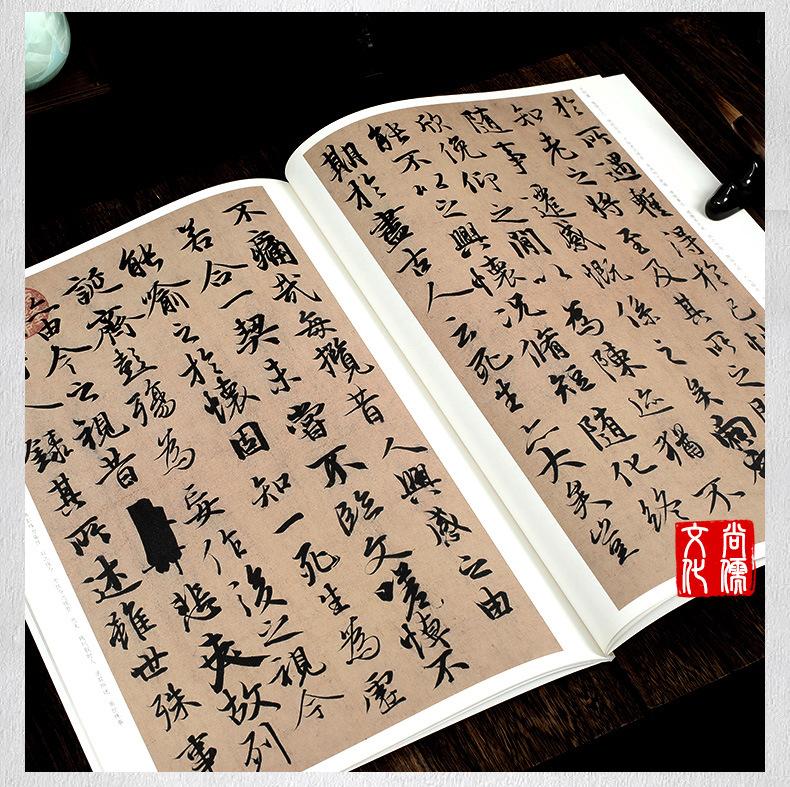 於所遇蹔得於己
知老之將至及其所之
隨事遷感慨係之矣向
欣俛仰之閒以為陳迹猶不
能不以之興懷況脩短隨化終
期於盡古人云死生亦大矣豈
不痛哉每攬昔人興感之由
若合一契未嘗不臨文嗟悼不
能喻之於懷固知一死生為虛
誕齊彭殤為妄作後之視今
由今之視昔悲夫故列
人錄其所述雖世殊事
尚儒
文化